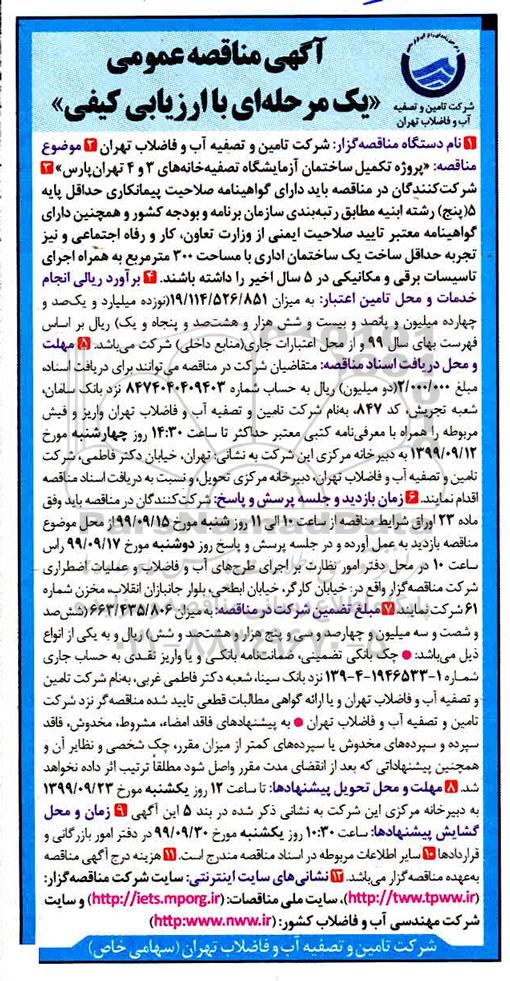 آگهی مناقصه عمومی
«یک مرحله‌ای با ارزیابی کیفی»
شرکت تامین و تصفیه
آب و فاضلاب تهران
۱ نام دستگاه مناقصه‌گزار: شرکت تامین و تصفیه آب و فاضلاب تهران ۲ موضوع
مناقصه: «پروژه تکمیل ساختمان آزمایشگاه تصفیه‌خانه‌های ۳ و ۴ تهران‌پارس» ۳
شرکت‌کنندگان در مناقصه باید دارای گواهینامه صلاحیت پیمانکاری حداقل پایه
۵(پنج) رشته ابنیه مطابق رتبه‌بندی سازمان برنامه و بودجه کشور و همچنین دارای
گواهینامه معتبر تایید صلاحیت ایمنی از وزارت تعاون، کار و رفاه اجتماعی و نیز
تجربه حداقل ساخت یک ساختمان اداری با مساحت ۳۰۰ مترمربع به همراه اجرای
تاسیسات برقی و مکانیکی در ۵ سال اخیر را داشته باشند. ۴ برآورد ریالی انجام
خدمات و محل تامین اعتبار: به میزان ۱۹/۱۱۴/۵۲۶/۸۵۱(نوزده میلیارد و یک‌صد و
چهارده میلیون و پانصد و بیست و شش هزار و هشت‌صد و پنجاه و یک) ریال بر اساس
فهرست بهای سال ۹۹ و از محل اعتبارات جاری(منابع داخلی) شرکت می‌باشد. ۵ مهلت
و محل دریافت اسناد مناقصه: متقاضیان شرکت در مناقصه می‌توانند برای دریافت اسناد،
مبلغ ۲/۰۰۰/۰۰۰(دو میلیون) ریال به حساب شماره ۸۴۷۴۰۴۰۴۰۹۴۰۳ نزد بانک سامان،
شعبه تجریش، کد ۸۴۷، به‌نام شرکت تامین و تصفیه آب و فاضلاب تهران واریز و فیش
مربوطه را همراه با معرفی‌نامه کتبی معتبر حداکثر تا ساعت ۱۴:۳۰ روز چهارشنبه مورخ
۱۳۹۹/۰۹/۱۲ به دبیرخانه مرکزی این شرکت به نشانی: تهران، خیابان دکتر فاطمی، شرکت
تامین و تصفیه آب و فاضلاب تهران، دبیرخانه مرکزی تحویل، و نسبت به دریافت اسناد مناقصه
اقدام نمایند. ۶ زمان بازدید و جلسه پرسش و پاسخ: شرکت‌کنندگان در مناقصه باید وفق
ماده ۲۳ اوراق شرایط مناقصه از ساعت ۱۰ الی ۱۱ روز شنبه مورخ ۹۹/۰۹/۱۵ از محل موضوع
مناقصه بازدید به عمل آورده و در جلسه پرسش و پاسخ روز دوشنبه مورخ ۹۹/۰۹/۱۷ راس
ساعت ۱۰ در محل دفتر امور نظارت بر اجرای طرح‌های آب و فاضلاب و عملیات اضطراری
مناقصه‌گزار واقع در: خیابان کارگر، خیابان ابطحی، بلوار جانبازان انقلاب، مخزن شماره
۶۱ شرکت نمایند. ۷ مبلغ تضمین شرکت در مناقصه: به میزان ۶۶۳/۴۳۵/۸۰۶ (شش‌صد
و شصت و سه میلیون و چهارصد و سی و پنج هزار و هشت‌صد و شش) ریال و به یکی از انواع
ذیل می‌باشد: ● چک بانکی تضمینی، ضمانت‌نامه بانکی و یا واریز نقدی به حساب جاری
شماره ۱-۱۹۴۶۵۳۳-۴-۱۳۹ نزد بانک سینا، شعبه دکتر فاطمی غربی، به‌نام شرکت تامین
و تصفیه آب و فاضلاب تهران و یا ارائه گواهی مطالبات قطعی تایید شده مناقصه‌گر نزد شرکت
تامین و تصفیه آب و فاضلاب تهران ● به پیشنهادهای فاقد امضاء، مشروط، مخدوش، فاقد
سپرده و سپرده‌های مخدوش یا سپرده‌های کمتر از میزان مقرر، چک شخصی و نظایر آن و
همچنین پیشنهاداتی که بعد از انقضای مدت مقرر واصل شود مطلقاً ترتیب اثر داده نخواهد
شد. ۸ مهلت و محل تحویل پیشنهادها: تا ساعت ۱۲ روز یکشنبه مورخ ۱۳۹۹/۰۹/۲۳
به دبیرخانه مرکزی این شرکت به نشانی ذکر شده در بند ۵ این آگهی ۹ زمان و محل
گشایش پیشنهادها: ساعت ۱۰:۳۰ روز یکشنبه مورخ ۹۹/۰۹/۳۰ در دفتر امور بازرگانی و
قراردادها ۱۰ سایر اطلاعات مربوطه در اسناد مناقصه مندرج است. ۱۱ هزینه درج آگهی مناقصه
به‌عهده مناقصه‌گزار می‌باشد. ۱۲ نشانی‌های سایت اینترنتی: سایت شرکت مناقصه‌گزار:
(http://tww.tpww.ir)، سایت ملی مناقصات: (http://iets.mporg.ir) و سایت
شرکت مهندسی آب و فاضلاب کشور: (http:www.nww.ir)
شرکت تامین و تصفیه آب و فاضلاب تهران (سهامی خاص)